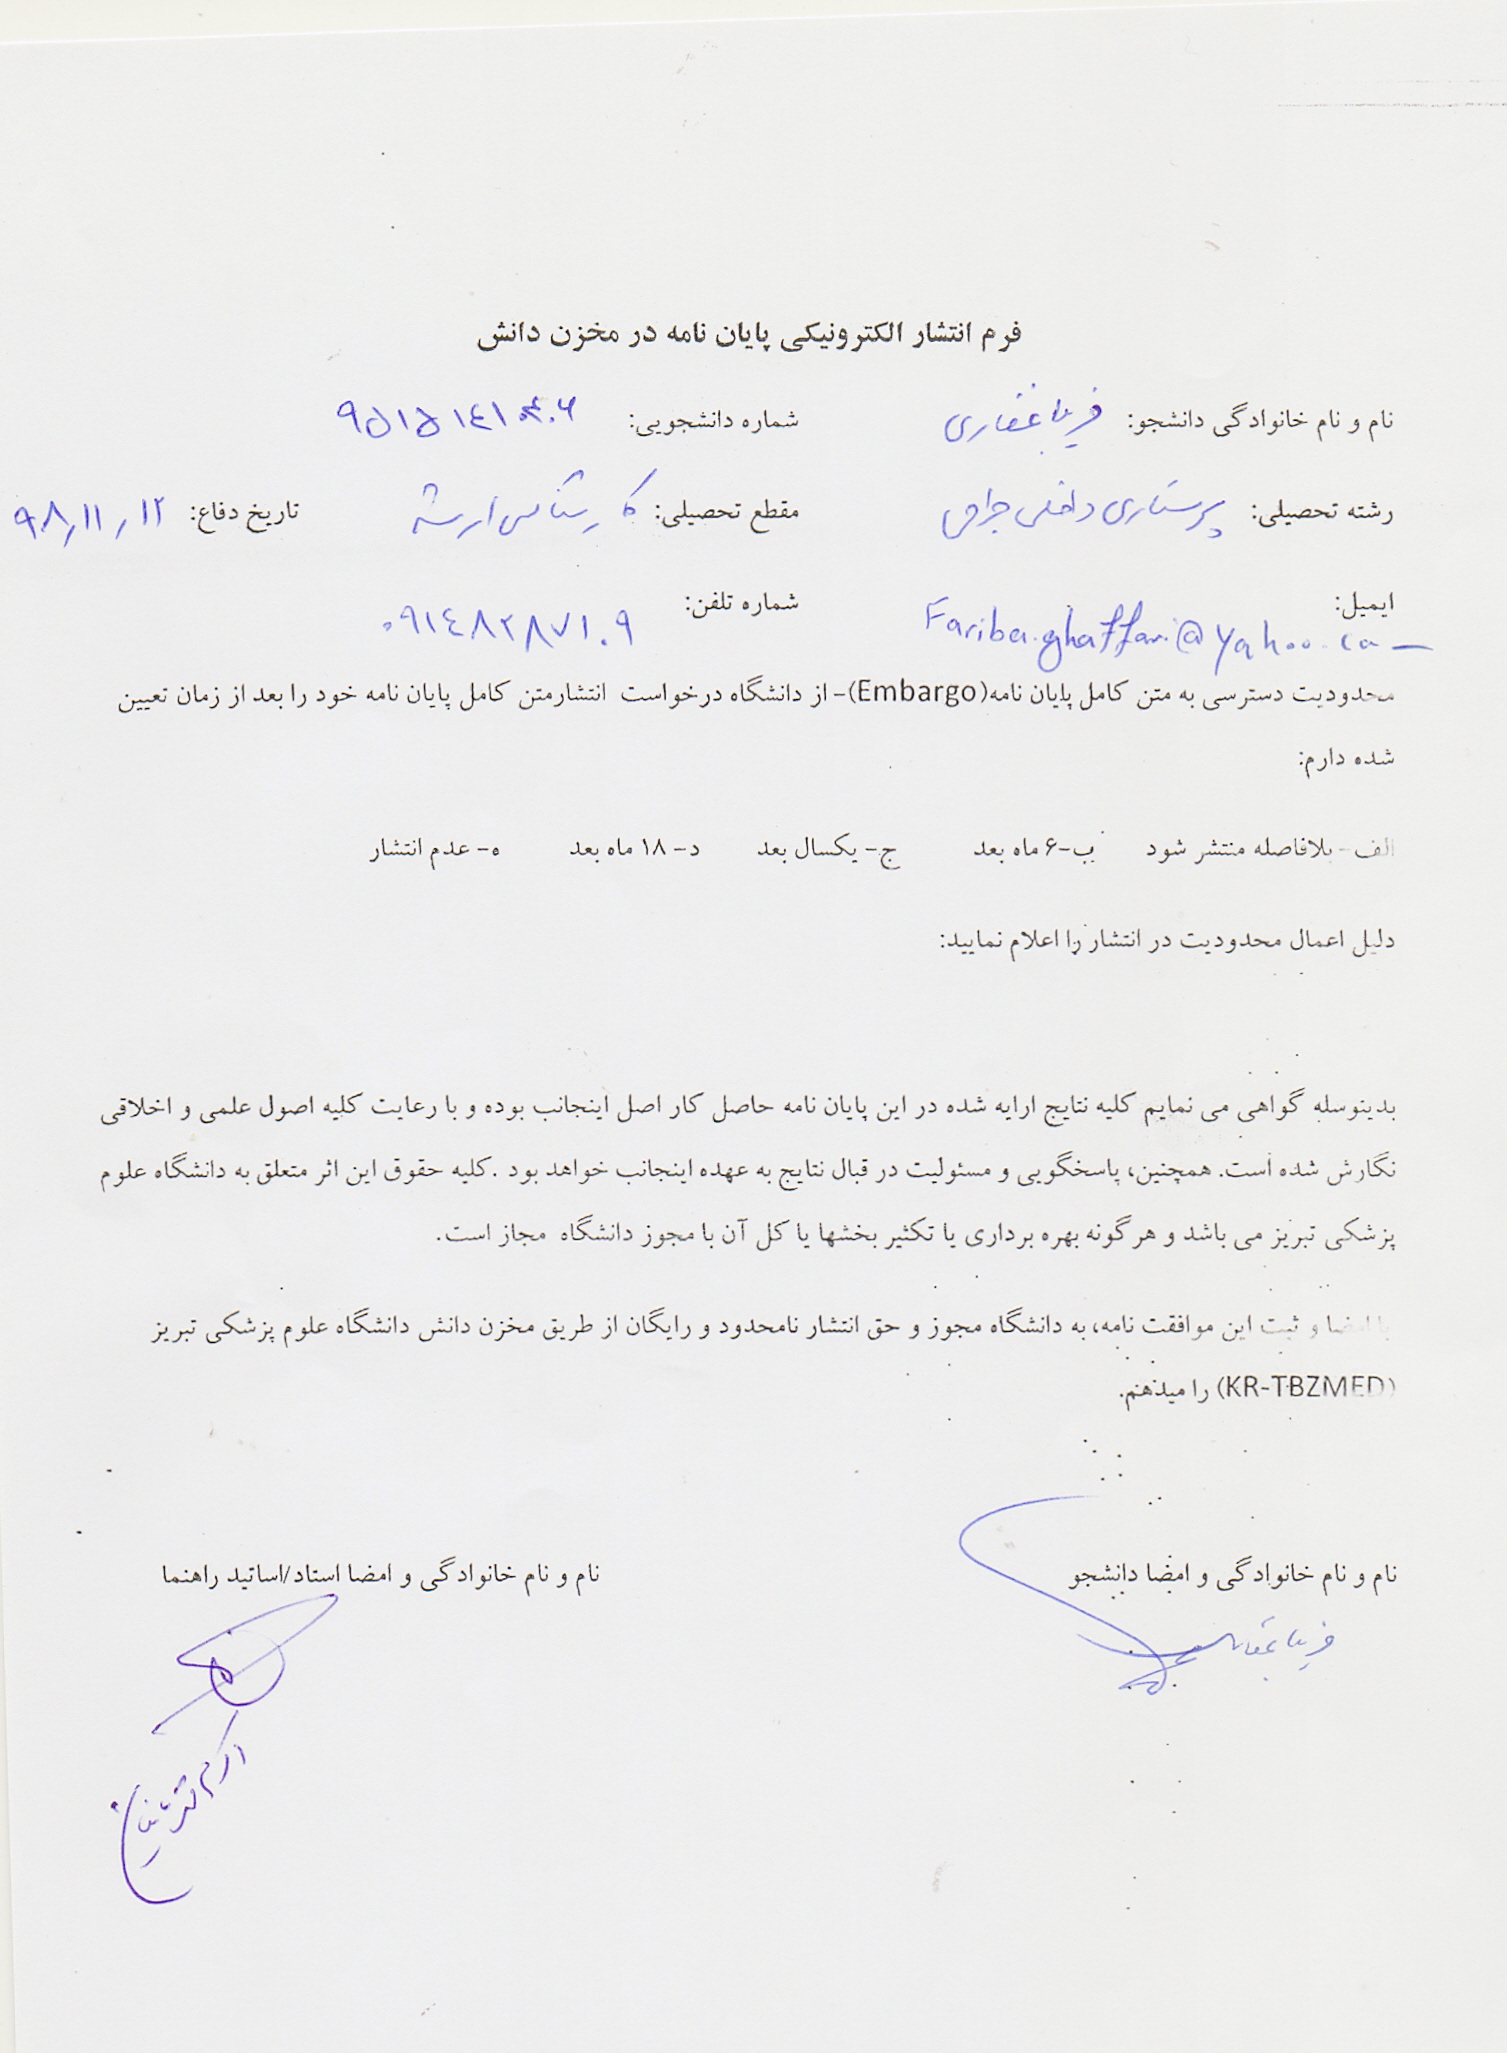 فرم انتشار الکترونیکی پایان نامه در مخزن دانش
نام و نام خانوادگی دانشجو: فریبا غفاری شماره دانشجویی:
رشته تحصیلی: پرستاری داخلی جراحی مقطع تحصیلی: کارشناسی ارشد تاریخ دفاع: ۹۸/۱۱/۱۲
ایمیل: Fariba.ghaffari@yahoo.co شماره تلفن: ۰۹۱۴۸۲۸۷۱۰۹
محدودیت دسترسی به متن کامل پایان نامه(Embargo)- از دانشگاه درخواست انتشارمتن کامل پایان نامه خود را بعد از زمان تعیین
شده دارم:
الف- بلافاصله منتشر شود ب-۶ ماه بعد ج- یکسال بعد د- ۱۸ ماه بعد ه- عدم انتشار
دلیل اعمال محدودیت در انتشار را اعلام نمایید:
بدینوسله گواهی می نمایم کلیه نتایج ارایه شده در این پایان نامه حاصل کار اصل اینجانب بوده و با رعایت کلیه اصول علمی و اخلاقی
نگارش شده است. همچنین، پاسخگویی و مسئولیت در قبال نتایج به عهده اینجانب خواهد بود .کلیه حقوق این اثر متعلق به دانشگاه علوم
پزشکی تبریز می باشد و هرگونه بهره برداری یا تکثیر بخشها یا کل آن با مجوز دانشگاه مجاز است.
با امضا و ثبت این موافقت نامه، به دانشگاه مجوز و حق انتشار نامحدود و رایگان از طریق مخزن دانش دانشگاه علوم پزشکی تبریز
(KR-TBZMED) را میدهم.
نام و نام خانوادگی و امضا دانشجو نام و نام خانوادگی و امضا استاد/اساتید راهنما
فریبا غفاری
اکرم قهرمانیان